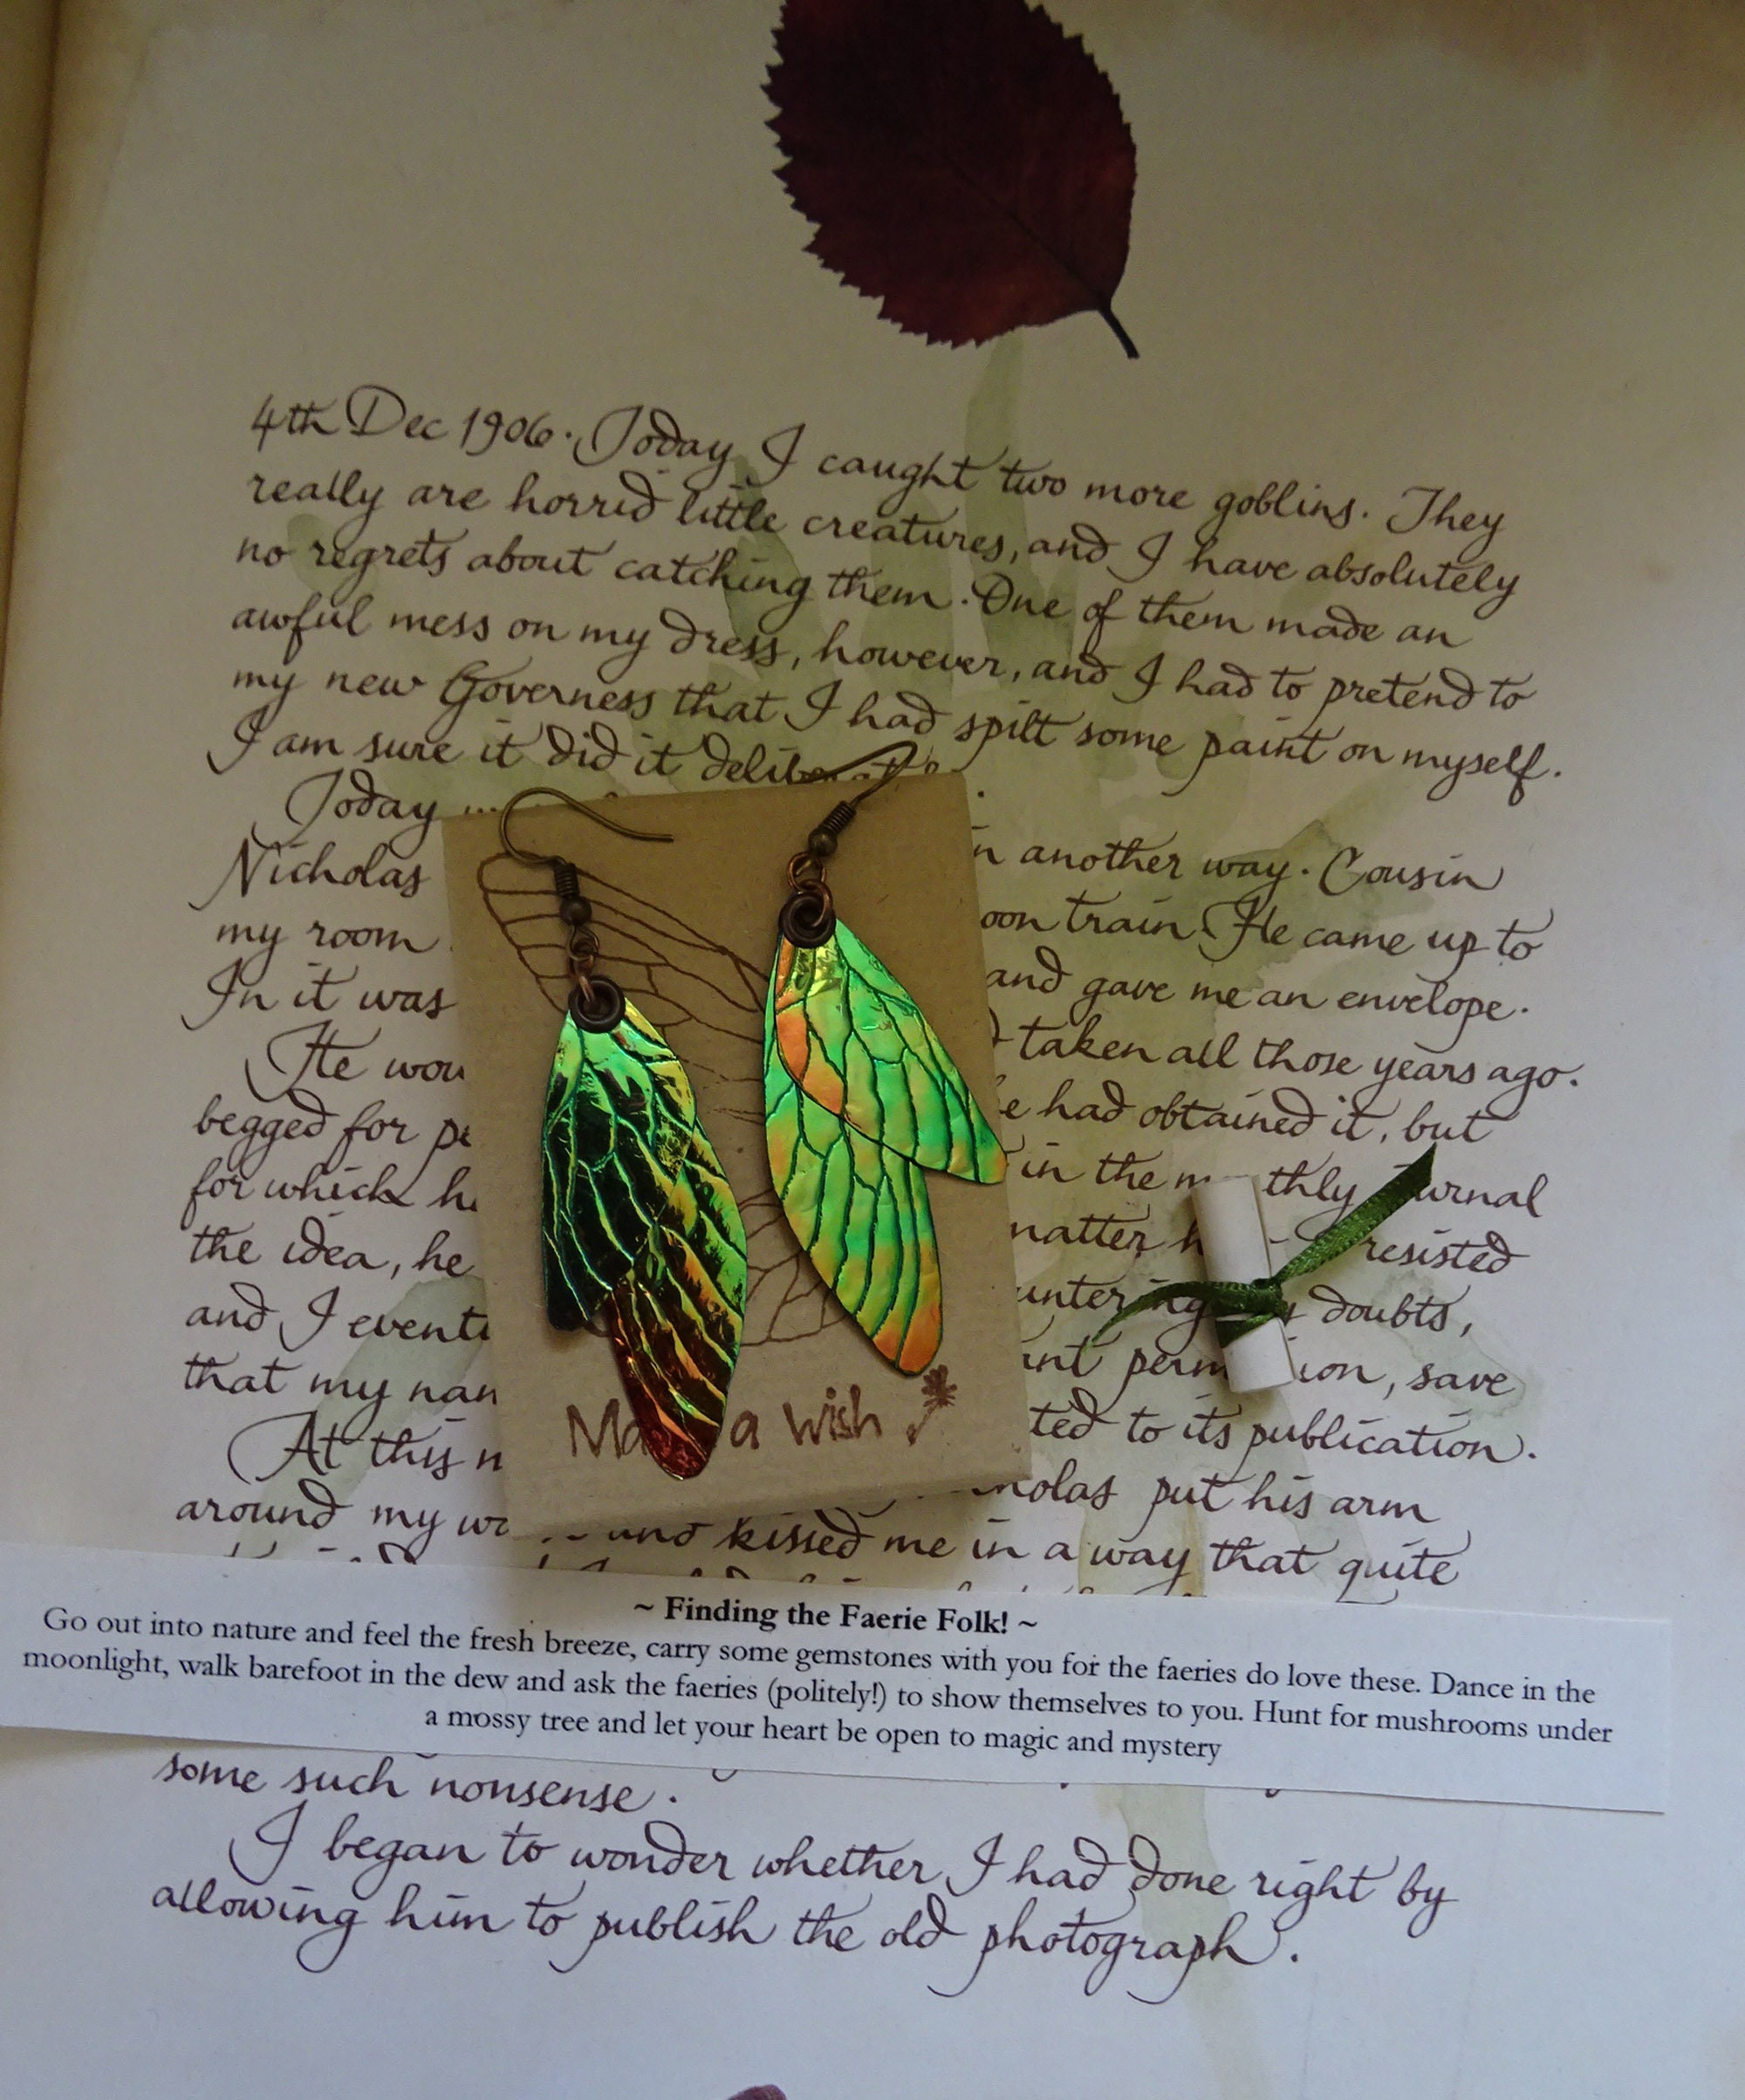 4th Dec 1906. Today I caught two more goblins. They
really are horrid little creatures, and I have absolutely
no regrets about catching them. One of them made an
awful mess on my dress, however, and I had to pretend to
my new Governess that I had spilt some paint on myself.
I am sure it did it
Today
Nicholas another way. Cousin
my room train. He came up to
In it was and gave me an envelope.
He taken all those years ago.
begged for had obtained it, but
for which in the
the idea, he resisted
and I doubts,
that my save
At this to its publication.
around my put his arm
kissed me in a way that quite
Make a wish
~ Finding the Faerie Folk! ~
Go out into nature and feel the fresh breeze, carry some gemstones with you for the faeries do love these. Dance in the
moonlight, walk barefoot in the dew and ask the faeries (politely!) to show themselves to you. Hunt for mushrooms under
a mossy tree and let your heart be open to magic and mystery
some such nonsense.
I began to wonder whether I had done right by
allowing him to publish the old photograph.